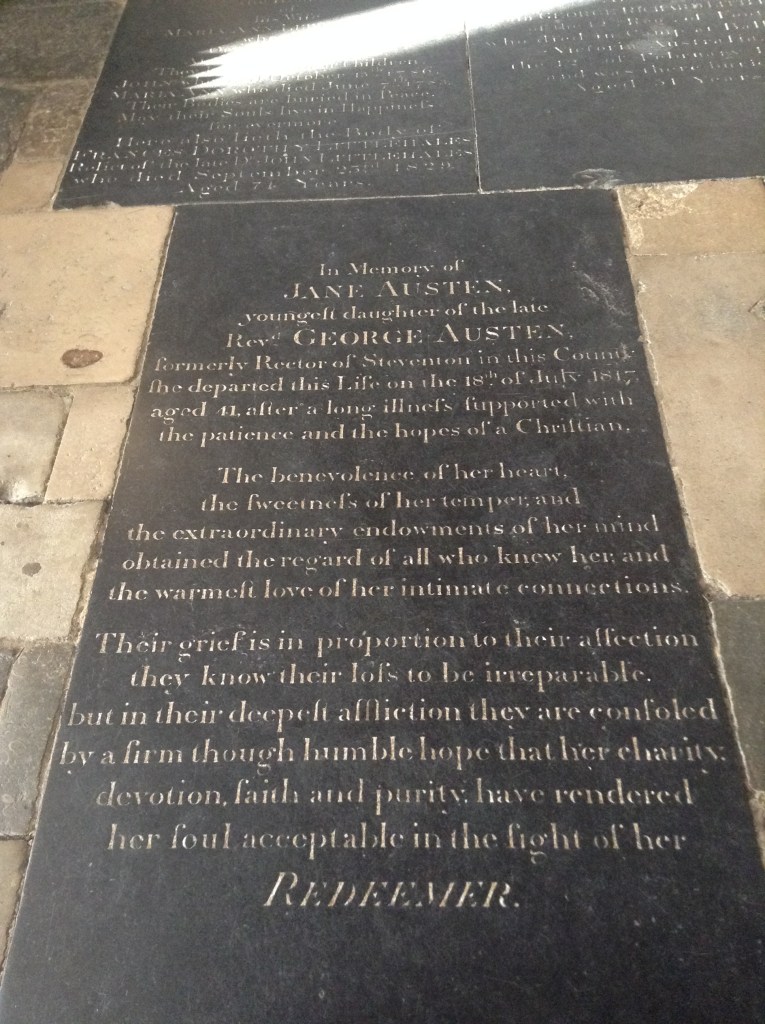 his Wife
MARIA
Children
JOHN
MARIA who died June
Their Bodies are buried in Peace,
May their Souls live in Happiness
for evermore.
Here also lieth the Body of
FRANCES DOROTHY LITTLEHALES
Relict of the late Dr. JOHN LITTLEHALES
who died September 23rd. 1829.
Aged 74 Years.
Victoria, Austra
and was
Aged 21 Years
In Memory of
JANE AUSTEN,
youngeſt daughter of the late
Revd. GEORGE AUSTEN,
formerly Rector of Steventon in this County
ſhe departed this Life on the 18th of July 1817,
aged 41, after a long illneſs ſupported with
the patience and the hopes of a Chriſtian.
The benevolence of her heart,
the ſweetneſs of her temper, and
the extraordinary endowments of her mind
obtained the regard of all who knew her, and
the warmeſt love of her intimate connections.
Their grief is in proportion to their affection
they know their loſs to be irreparable,
but in their deepeſt affliction they are conſoled
by a firm though humble hope that her charity,
devotion, faith and purity, have rendered
her ſoul acceptable in the ſight of her
REDEEMER.